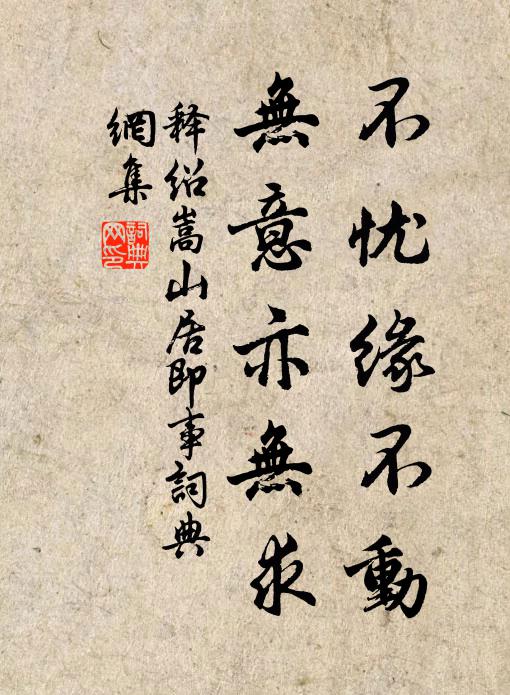 不忧缘不動
無意亦無求
释绍嵩山居即事詞典
網集
詞典
网印